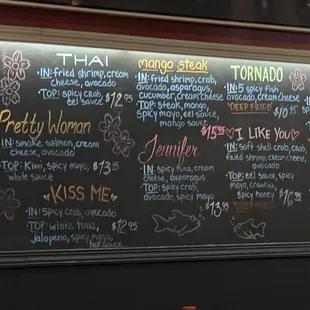 THAI
IN: fried shrimp, cream
cheese, avocado
TOP: spicy crab,
eel sauce $12.95
Pretty Woman
IN: smoke salmon, cream
cheese, avocado
TOP: Kiwi, spicy mayo,
white sauce $13.95
KISS ME
IN: spicy crab, avocado
TOP: white tuna,
jalapeno, spicy mayo,
hot sauce $12.95
mango steak
IN: fried shrimp, crab,
avocado, asparagus,
cucumber, cream cheese
TOP: steak, mango,
spicy mayo, eel sauce,
mango sauce
$15.95
Jennifer
IN: spicy tuna, cream
cheese, asparagus
TOP: spicy crab,
avocado, spicy mayo
$13.95
TORNADO
IN: 5 spicy fish,
avocado, cream cheese
DEEP FRIED
$10.95
I LIKE YOU
IN: soft shell crab,
fried shrimp, cream cheese,
avocado
TOP: eel sauce, spicy
mayo, crawfish,
spicy honey $16.95